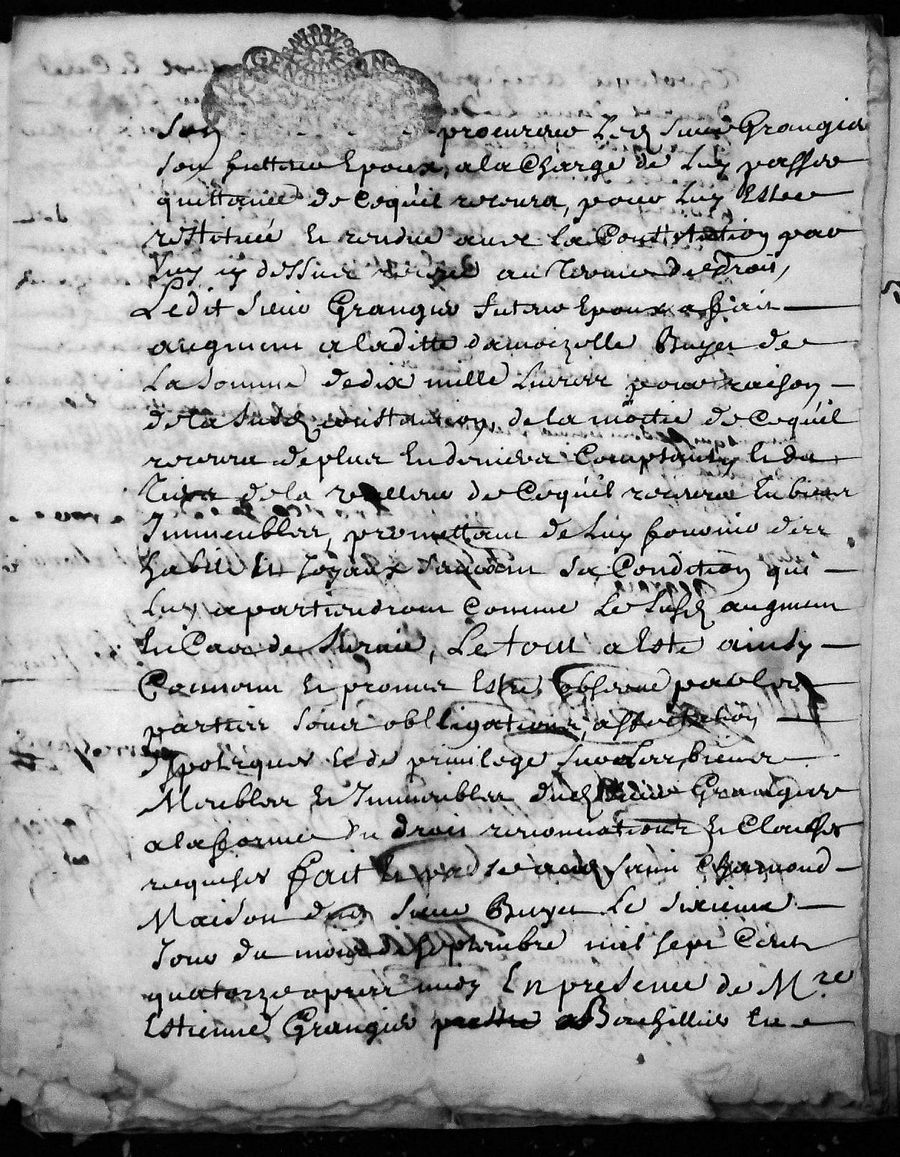 GEN DE LION
Son procureur Led Sieur Grangier
Son futture Epoux, a la Charge de Luy passer
quittance de Cequil recevra, pour Luy Estre
restituée Et rendue avec la Constitution par
Luy cy dessus au Terme de droit,
Ledit Sieur Grangier futeur Epoux a ffait
augment a laditte damoizelle Buyet de
La Somme de dix mille Livres pour raison
de la Susd constitution, de la moitié de Cequil
recevra de plus En deniers Comptants, Et du
Tiers de la valleur de Cequil recevra En biens
Immeubles, promettant de Luy fournir des
habits Et Joyaux Suivant Sa Condition qui
Luy apartiendront Comme Le Susd augment
En Cas de Survie, Le tout a Esté ainsy
Convenu Et promis Estre observé par les
parties Sous obligations, affectation
Ypoteques Et de privilege Sur Les biens
Meubles Et Immeubles dud Sieur Grangier
a la fforme du droit renonciations Et Clauses
requises fait Et passé aud Saint Chamond
Maison dud Sieur Buyet Le Sixieme
Jour du mois de Septembre mil Sept Cent
quatorze apres midy En presence de Mre
Estienne Grangier prestre Bachellier En